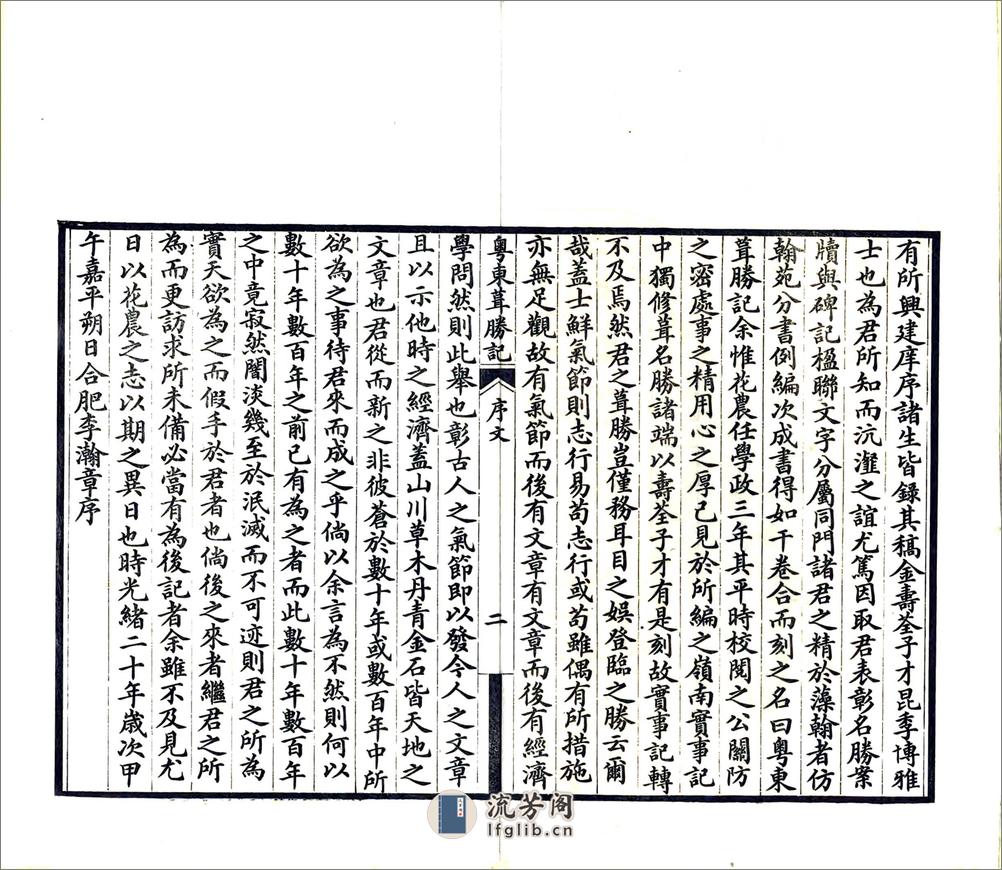 有所興建庠序諸生皆錄其稿金壽荃子才昆季博雅
士也為君所知而沆瀣之誼尤篤因取君表彰名勝案
牘與碑記楹聯文字分屬同門諸君之精於藻翰者仿
翰苑分書例編次成書得如干卷合而刻之名曰粵東
葺勝記余惟花農任學政三年其平時校閱之公關防
之密處事之精用心之厚已見於所編之嶺南實事記
中獨修葺名勝諸端以壽荃子才有是刻故實事記轉
不及焉然君之葺勝豈僅務耳目之娛登臨之勝云爾
哉蓋士鮮氣節則志行易苟志行或苟雖偶有所措施
亦無足觀故有氣節而後有文章有文章而後有經濟
粵東葺勝記 序文 二
學問然則此舉也彰古人之氣節即以發今人之文章
且以示他時之經濟蓋山川草木丹青金石皆天地之
文章也君從而新之非彼蒼於數十年或數百年中所
欲為之事待君來而成之乎倘以余言為不然則何以
數十年數百年之前已有為之者而此數十年數百年
之中竟寂然闇淡幾至於泯滅而不可迹則君之所為
實天欲為之而假手於君者也倘後之來者繼君之所
為而更訪求所未備必當有為後記者余雖不及見尤
日以花農之志以期之異日也時光緒二十年歲次甲
午嘉平朔日合肥李瀚章序
流芳阁
lfglib.cn